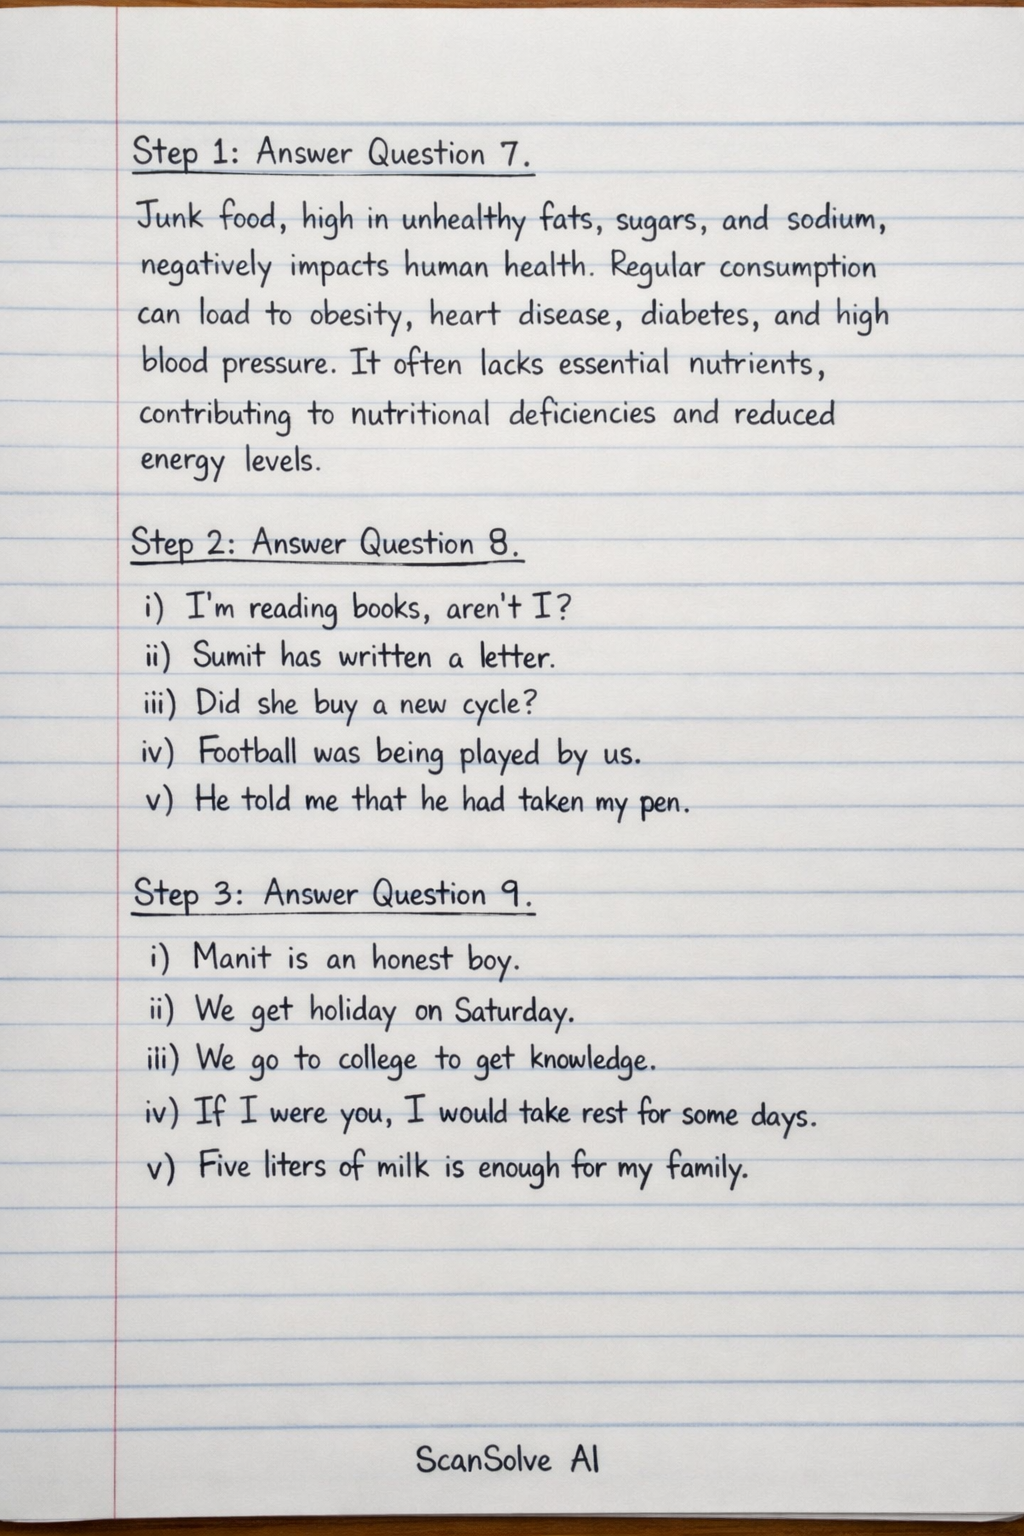 Step 1: Answer Question 7.
Junk food, high in unhealthy fats, sugars, and sodium,
negatively impacts human health. Regular consumption
can load to obesity, heart disease, diabetes, and high
blood pressure. It often lacks essential nutrients,
contributing to nutritional deficiencies and reduced
energy levels.
Step 2: Answer Question 8.
i) I'm reading books, aren't I?
ii) Sumit has written a letter.
iii) Did she buy a new cycle?
iv) Football was being played by us.
v) He told me that he had taken my pen.
Step 3: Answer Question 9.
i) Manit is an honest boy.
ii) We get holiday on Saturday.
iii) We go to college to get knowledge.
iv) If I were you, I would take rest for some days.
v) Five liters of milk is enough for my family.
ScanSolve AI